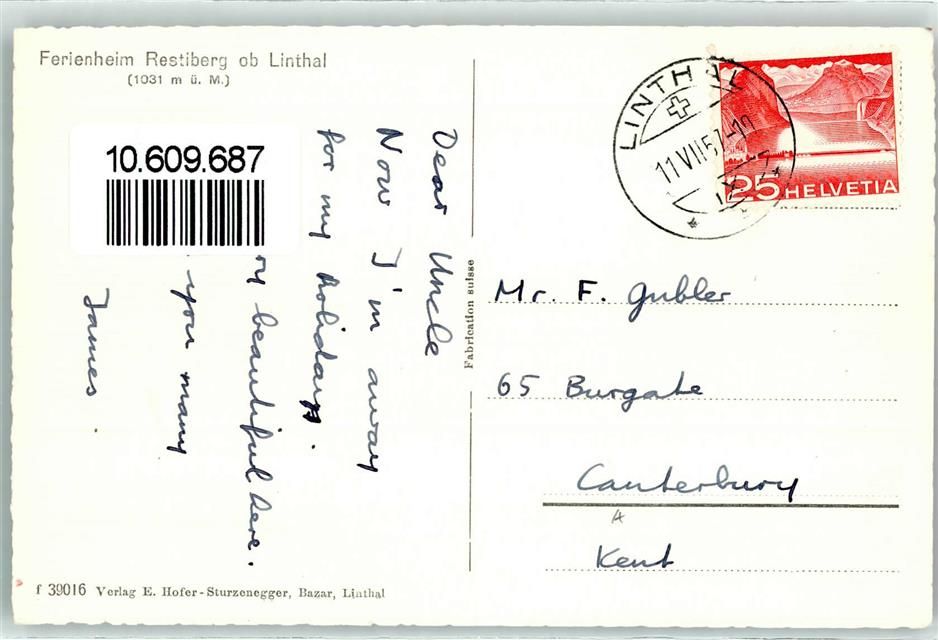 Ferienheim Restiberg ob Linthal
(1031 m ü. M.)
10.609.687
Dear Uncle
Now I'm away
for my holidays.
beautiful here.
you many
James
Fabrication suisse
LINTHAL
11.VII.57-10
25 HELVETIA
Mr. F. Gubler
65 Burgate
Canterbury
Kent
f 39016 Verlag E. Hofer-Sturzenegger, Bazar, Linthal